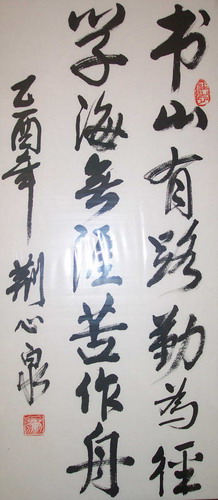 书山有路勤为径
学海无涯苦作舟
乙酉年 荆心泉